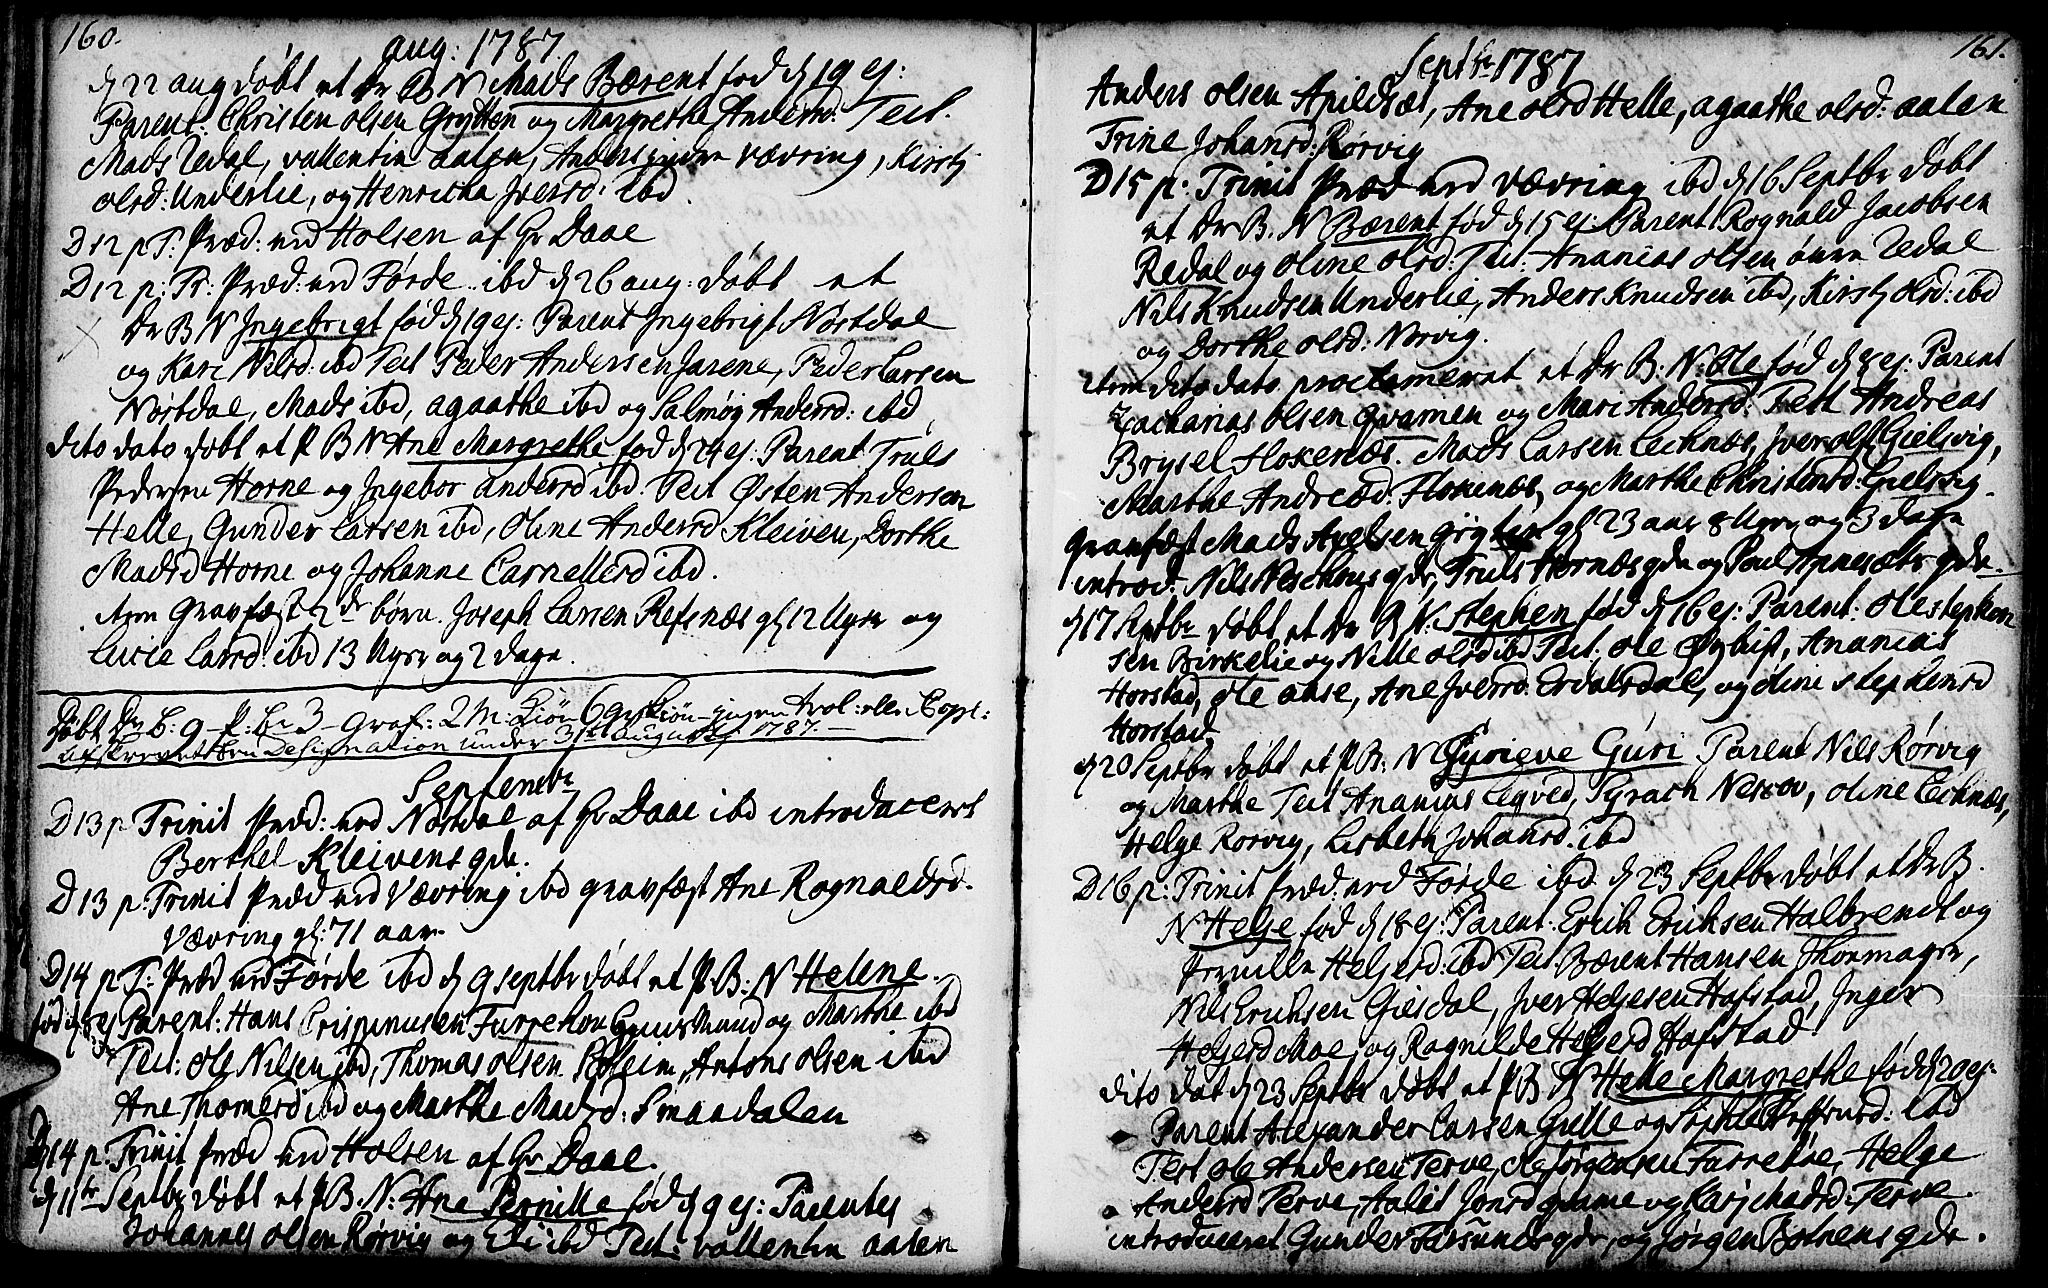 160.
aug: 1787.
d 22 aug døbt et Dr B N Mads Bærent fød d 19 ej:
Parent: Christen olsen Grytten og Margrethe Andersd: Test.
Mads Redal, vallentin aalen, Anders Vævring, Kirstj
olsd: Underlie, og Henricka Jversd: ibd.
D 12 p T: Præd: ved Holsen af Hr Daae
D 12 p: Tr: Præd: ved Førde ibd d 26 aug: døbt et
Dr B N Ingebrigt fød d 19 ej: Parent Ingebrigt Nostdal
og Kari Nilsd: ibd Test Peder Andersen Farene, Peder Larsen
Nostdal, Mads ibd, agaathe ibd og Salmøg Andersd: ibd
dito dato døbt et P B N Ane Margrethe fød d 24 ej: Parent Truls
Pedersen Horne og Ingebor andersd ibd. Test Østen Andersen
Helle, Gunder Larsen ibd, Oline Andersd Kleiven, Dorthe
Madsd Horne og Johanne Carnellesd ibd.
item Gravfæst 2de børn. Joseph Larsen Refsnæs gl 12 Uger og
Lucie Larsd: ibd 13 Uger og 2 dage.
Døbt Dr B: 9 - P: B: 3 - Graf: 2 M: Kiøn 6 qv: Kiøn - ingen Trol: eller Copl:
Designation under 31 august 1787. -
Septembr
D 13 p Trinit Præd: ved Nostdal af Hr Daae ibd introduceret
Berthel Kleivens qde.
D 13 p: Trinit Præd ved Vævring ibd gravfæst Ane Rognaldsd.
Vævring gl: 71 aar
D 14 p T: Præd ved Førde ibd d 9 septbr døbt et P. B: N Helene.
fød d 8 ej Parent: Hans Crispinusen Furrehou og Marthe ibd
Test: ole Nilsen ibd, Thomas olsen Soleim, Antons olsen ibd
Ane Thomesd ibd og Marthe Madsd: Smaadalen
D 14 p: Trinit præd ved Holsen af Hr Daae.
d 11te Septbr døbt et P B. N: Ane Pernille fød d 9 ej: Parentes
Johannes olsen Rørvig og Eli ibd Test: vallentin aalen
161.
Septbr 1787
Anders olsen Apildsæt, Ane olsd Helle, agaathe olsd: aalen
Trine Johansd: Rørvig
D 15 p: Trinit Præd ved Vævring ibd d 16 Septbr døbt
et Dr B. N Bærent fød d 15 ej: Parent Rognald Jacobsen
Redal og Oline olsd: Test: Ananias olsen øvre Redal
Nils Knudsen Underlie, Anders Knudsen ibd, Kirstj olsd: ibd
og Dorthe olsd: Norvig.
item dito dato proclameret et Dr B: N: Ole fød d 8 ej: Parent
Zacharias olsen Qvamen og Mari Andersd: Test Andreas
Brysel Flokenæs. Mads Larsen Lechnæs, Jver ols Gielsvig,
Marthe Andreæd: Flokenæs, og Marthe Christensd: Gielsvig.
Gravfæst Mads Axelsen gl 23 aar 8 Uger og 3 dage
introd: Nils qde, Truls Hornæs qde og Poul Apnesæts qde
d 17 Septbr døbt et Dr B N: Stephen fød d 16 ej: Parent: Ole stephen
sen Birkelie og Nille olsd ibd Test: ole Øybust, Ananias
Horstad, ole aase, Ane Jversd: Erdalsdal, og oline stephensd
Horstad
d 20 Septbr døbt et P B: N Gyrieve Guri Parent Nils Rørvig
og Marthe Test Ananias Legved, Tyrach Neskov, oline Lechnæs,
Helge Rorvig, Lisbeth Johansd. ibd
D 16 p: Trinit præd. ved Førde ibd. d 23 Septbr døbt et Dr B.
N Helge fød d 18 ej: Parent. Erich Erichsen Halbrendt og
Pernille Helgesd: ibd Test Bærent Hansen
Nils Erichsen Giesdal, Jver Helgesen Hafstad, Inger
Helgesd Moe, og Ragnilde Helgesd Hafstad
dito dat d 23 Septbr døbt et P B N Helle Margrethe fød d 20 ej.
Parent Alexander Larsen Gielle og Sophie ibd
Test ole Andersen Terve, ole Jørgensen Furrehøe, Helge
Andersd Terve, Aalet Jonsd gramme og Karj Madsd: Terve.
introduceret Gunder Farsunds qde, og Jørgen Botnens qde.